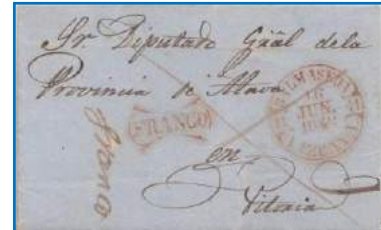 Sr. Diputado Gral dela
Provincia de Alava
FRANCO
16
JUN.
Franco
en
Vitoria